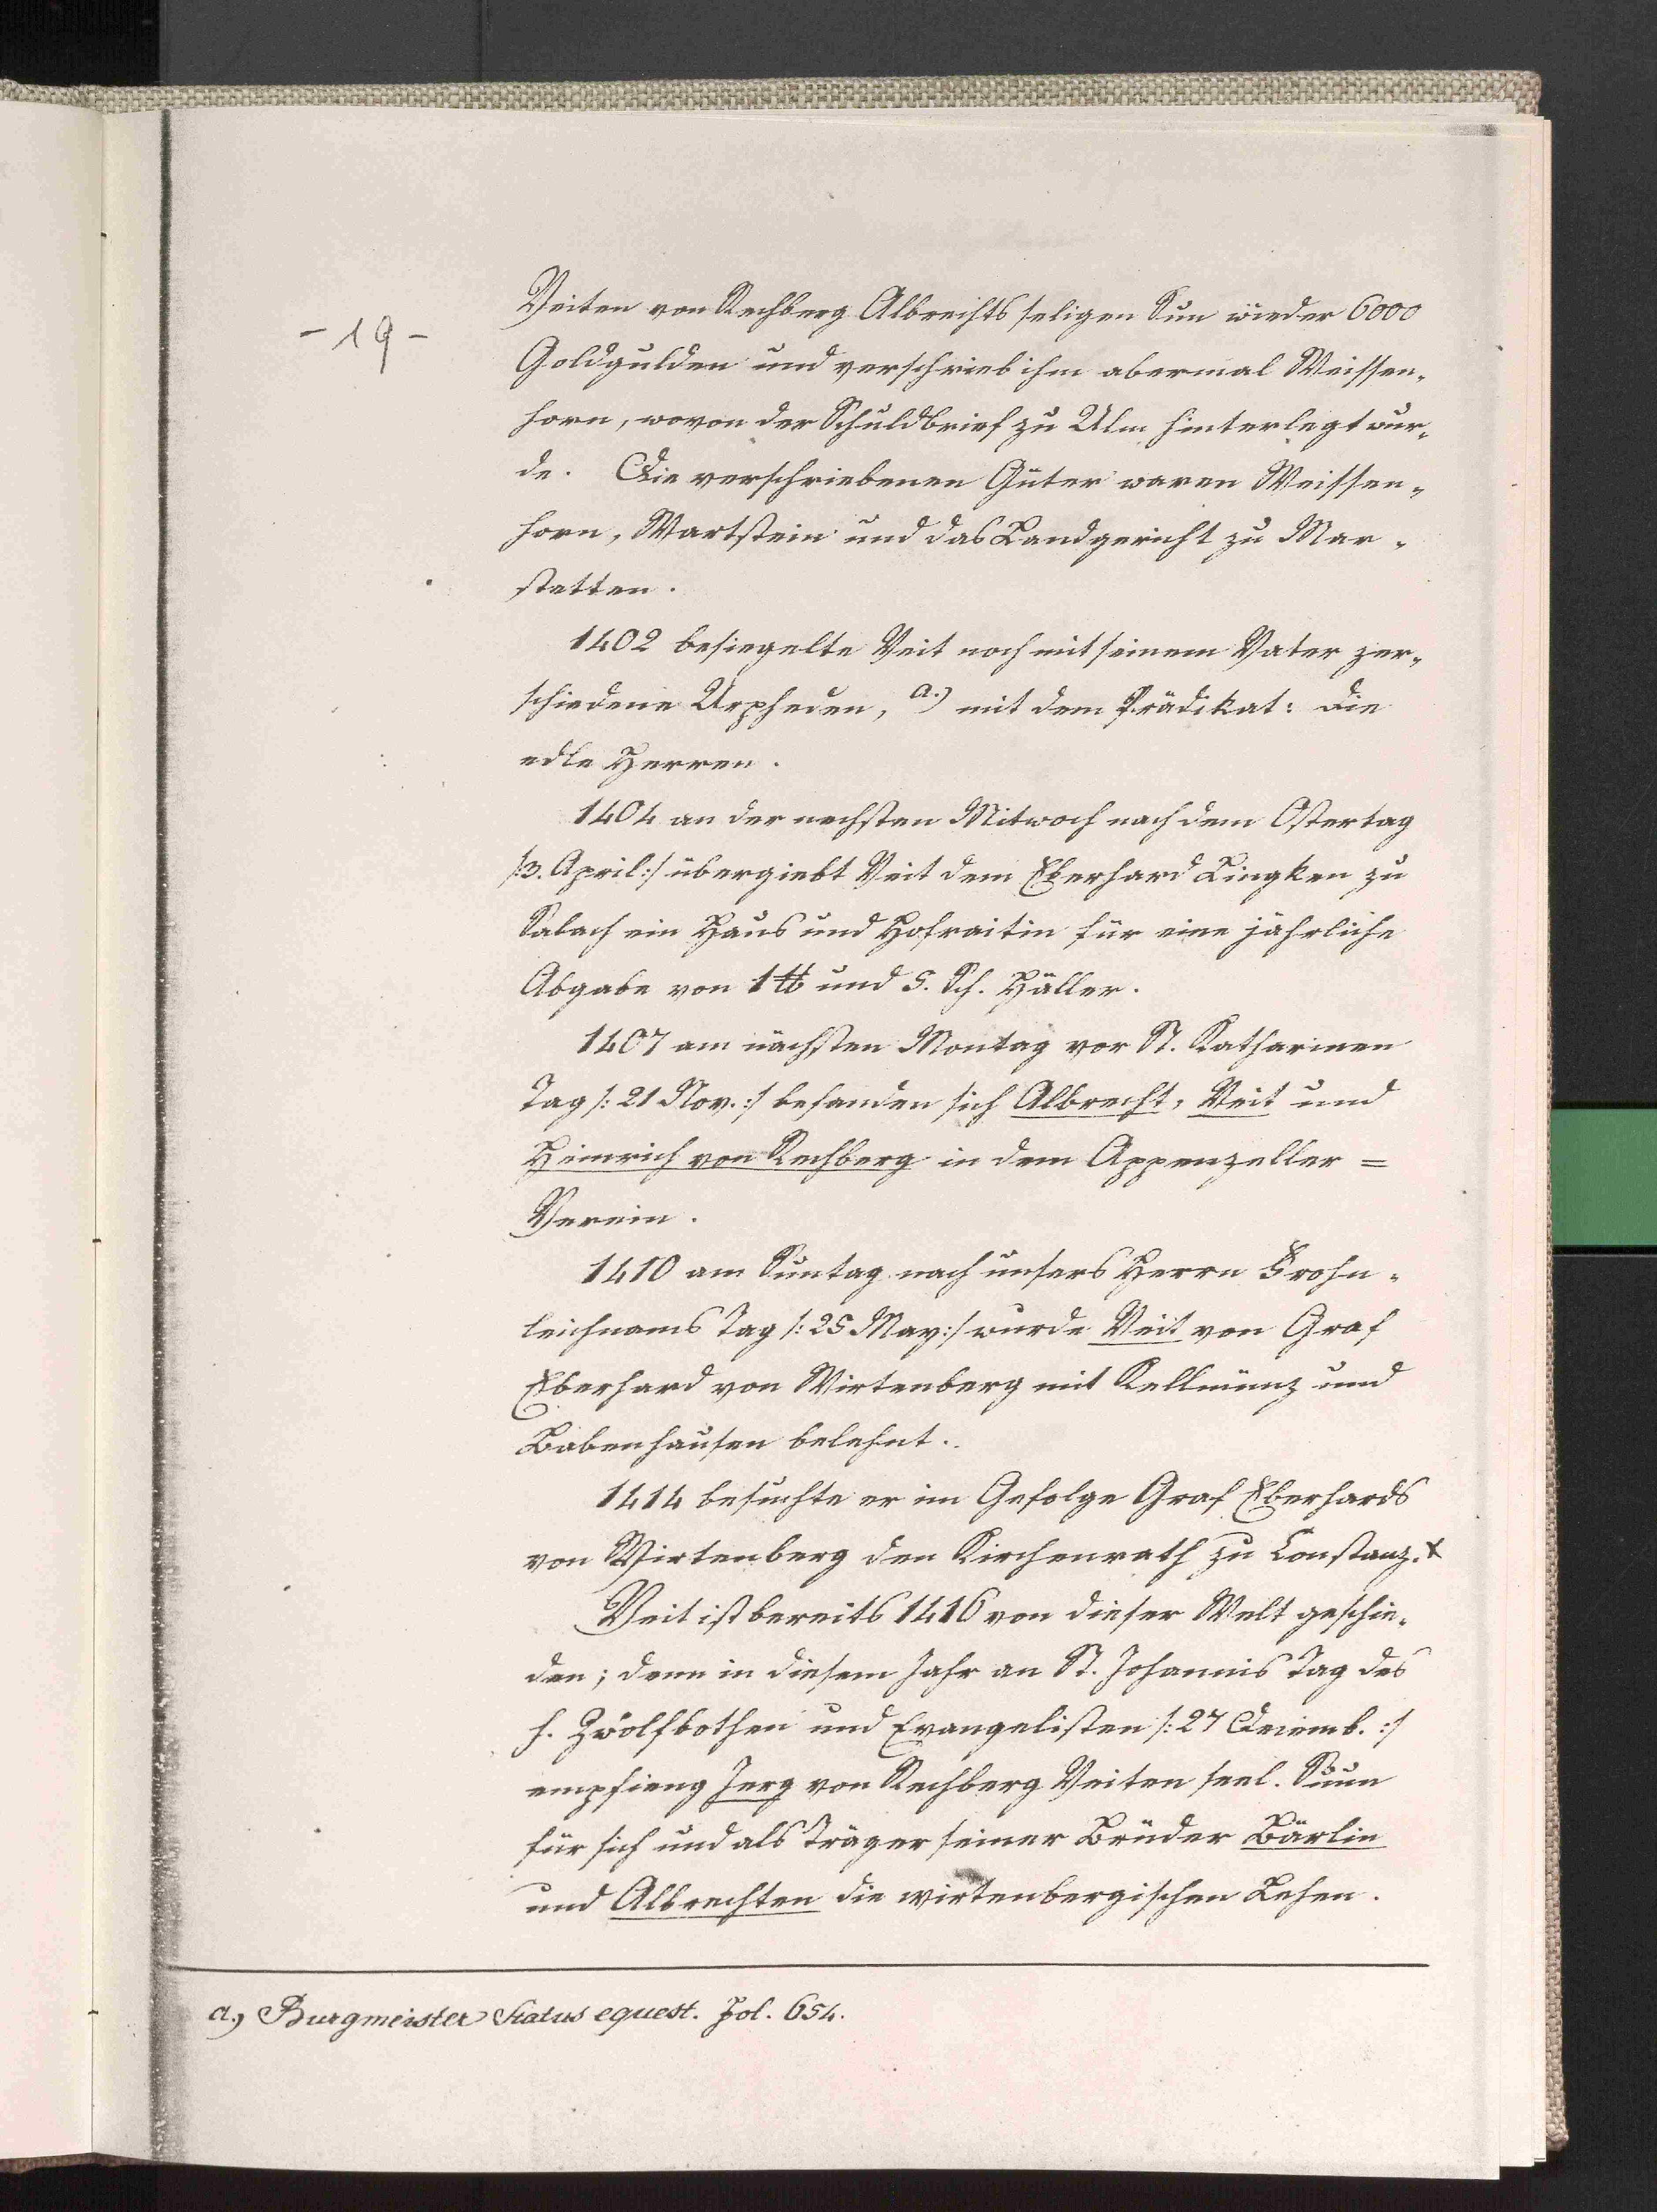 - 19 -
Veiten von Rechberg Albrechts seligen Sun wieder 6000
Goldgulden und verschrieb ihm abermal Weissen„
horn, wovon der Schuldbrief zu Ulm hinterlegt wur„
de. Die verschriebenen Güter waren Weissen„
horn, Wartstein und das Landgericht zu Mar„
stetten.
1402 besiegelte Veit noch mit seinem Vater zer„
schiedene Urpheden, a.) mit dem Prädikat: die
edle Herren.
1404 an der nechsten Mitwoch nach dem Ostertag
/:3. April:/ übergiebt Veit dem Eberhard Lingken zu
Salach ein Haus und Hofraitin für eine jährliche
Abgabe von 1 ℔ und 5. Sch. Häller.
1407 am nächsten Montag vor St. Katharinen
Tag /: 21 Nov.:/ befanden sich Albrecht, Veit und
Heinrich von Rechberg in dem Appenzeller =
Verein.
1410 am Suntag nach unsers Herrn Frohn„
leichnams Tag /: 25 May:/ wurde Veit von Graf
Eberhard von Wirtenberg mit Kellmünz und
Babenhausen belehnt.
1414 besuchte er im Gefolge Graf Eberhards
von Wirtenberg den Kirchenrath zu Constanz. x
Veit ist bereits 1416 von dieser Welt geschie„
den; denn in diesem Jahr an St. Johannis Tag des
h. Zwölfbothen und Evangelisten /: 27 Decemb. :/
empfieng Jerg von Rechberg Veiten seel. Suun
für sich und als Träger seiner Brüder Bärlin
und Albrechten die wirtenbergischen Lehen.
a.) Burgmeister Status equest. Fol. 654.